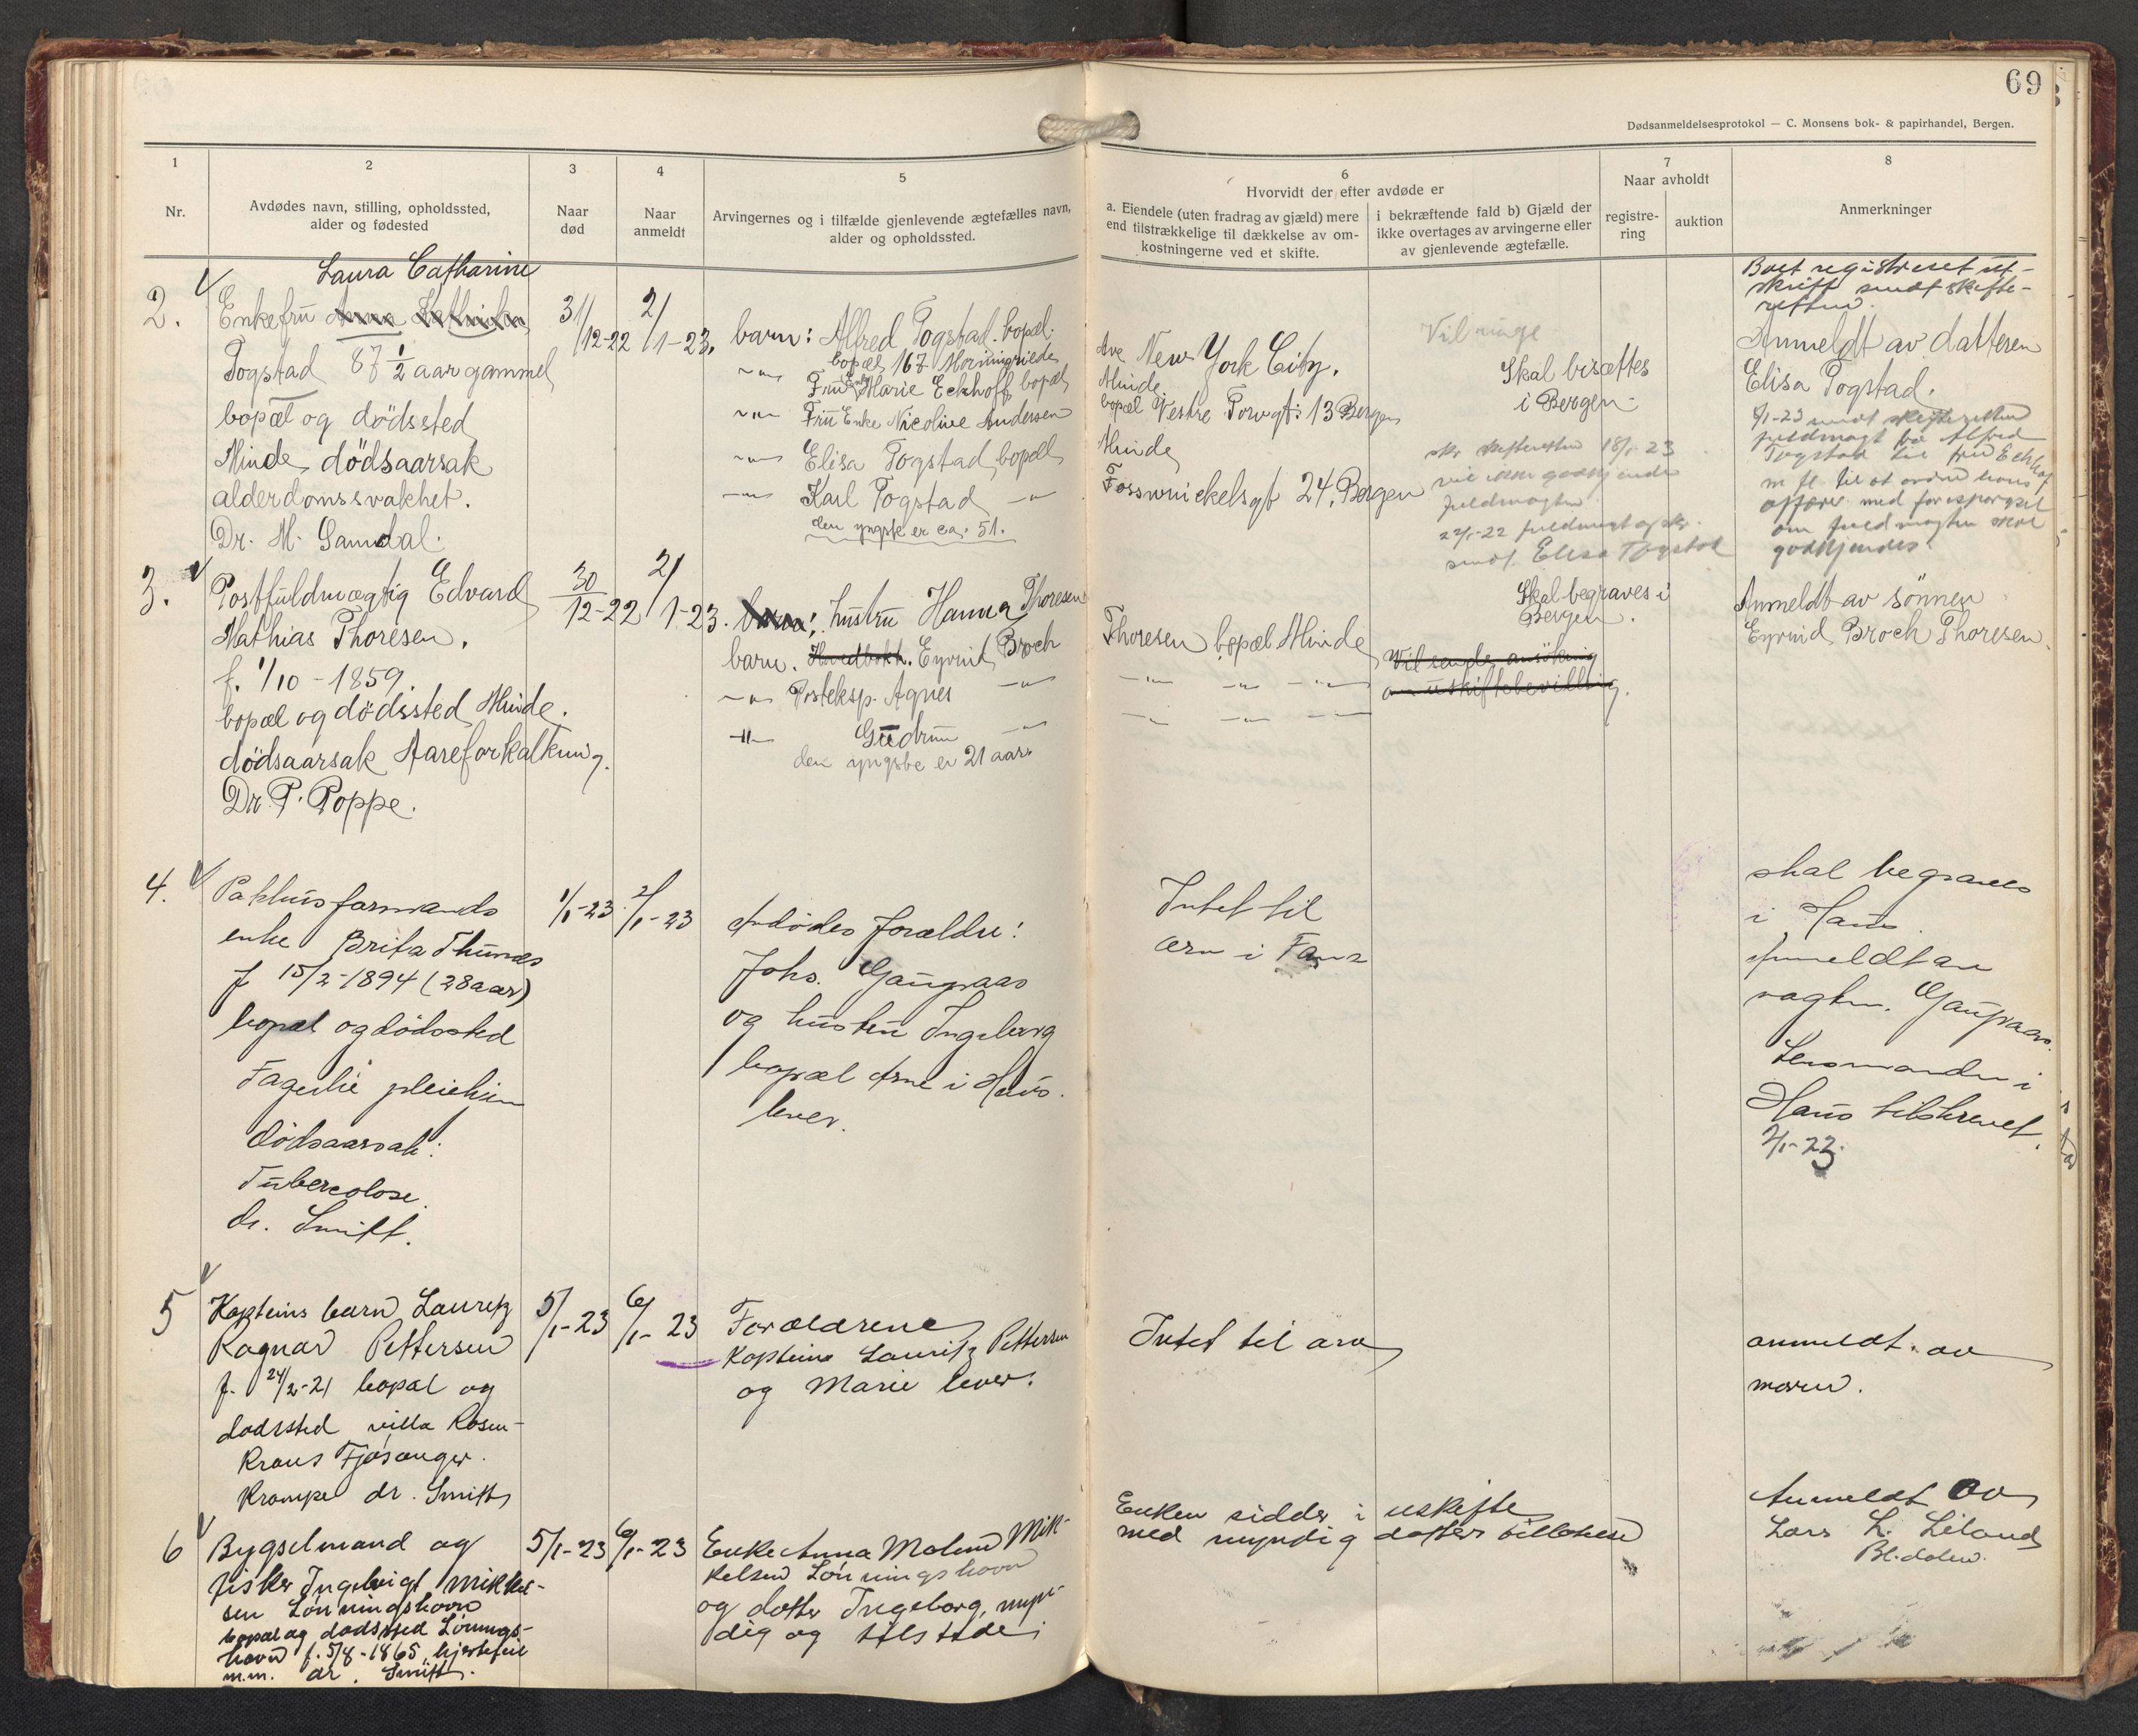 69
Dødsanmeldelsesprotokol — C. Monsens bok- & papirhandel, Bergen.
1
Nr.
2
Avdødes navn, stilling, opholdssted,
alder og fødested
3
Naar
død
4
Naar
anmeldt
5
Arvingernes og i tilfælde gjenlevende ægtefælles navn,
alder og opholdssted.
6
Hvorvidt der efter avdøde er
a. Eiendele (uten fradrag av gjæld) mere
end tilstrækkelige til dækkelse av om-
kostningerne ved et skifte.
i bekræftende fald b) Gjæld der
ikke overtages av arvingerne eller
av gjenlevende ægtefælle.
7
Naar avholdt
registre-
ring
auktion
8
Anmerkninger
2.
Laura Catharine
Enkefru Anna Kathinka
Togstad 87 1/2 aar gammel
bopæl og dödssted
Minde, dödsaarsak
alderdomssvakhet.
Dr. M. Gamdal.
31/12-22
2/1-23.
barn: Alfred Togstad. bopæl.
bopæl 167 Morningside
Ave New York City.
-"- Fru Marie Eckhoff bopæl
Minde.
-"- Fru Enke Nicoline Andersen
bopæl Vestre Torvgt: 13 Bergen
-"- Elisa Togstad, bopæl
Minde
-"- Karl Togstad -"-
Fosswinckelsgt 24. Bergen
den yngste er ca. 51.
Vil ringe
Skal bisættes
i Bergen.
skr. skifteretten 18/1-23
vil ikke godkjende
fuldmagten
22/1-22 fuldmagt
sendt Elisa Togstad
Boet registreret ut-
skrift sendt skifte-
retten.
Anmeldt av datteren
Elisa Togstad.
8/1-23 sendt skifteretten
fuldmagt fra Alfred
Togstad til fru Eckhoff
m fl. til at ordne hans
affærer med forespørgsel
om fuldmagten skal
godkjendes.
3.
Postfuldmægtig Edvard
Mathias Thoresen.
f. 1/10 - 1859.
bopæl og dödssted Minde.
dödsaarsak Aareforkalkning.
Dr. P. Poppe.
30/12-22
2/1-23.
barn: hustru Hanna Thoresen
barn. Eyvind Broch
Thoresen bopæl Minde
-"- Posteksp. Agnes -"-
-"- -"- -"-
-"- Gudrun -"-
-"- -"- -"-
den yngste er 21 aar
Skal begraves i
Bergen.
Vil sende ansökning
om uskiftebevilling.
Anmeldt av sönnen
Eyvind Broch Thoresen.
4.
Pakhusformands
enke Brita Thunes
f 15/2-1894 (28 aar)
bopæl og dödssted
Fagerlie pleiehim
dödsaarsak:
Tubercolose.
dr. Smitt.
1/1-23
2/1-23
Avdödes forældre:
Johs. Gaupaas
og hustru Ingeborg
bopæl Arne i Haus.
lever.
Intet til
arv i Fana
skal begraves
i Haus.
Anmeldt av
vagtm. Gaupaas.
Lensmanden i
Haus tilskrevet.
2/1-23.
5
Kapteins barn Lauritz
Ragnar Pettersen
f. 24/2-21 bopæl og
dødssted villa Rosen-
krans Fjøsanger.
Krampe dr. Smitt
5/1-23
6/1-23
Forældrene
Kaptein Lauritz Pettersen
og Marie lever.
Intet til arv
anmeldt av
moren.
6
Bygselmand og
fisker Ingebrigt Mikkel-
sen Lønningshavn
bopæl og dødssted Lønnings-
havn f. 5/8-1865, hjertefeil
m.m. dr. Smitt.
5/1-23
6/1-23
Enke Anna Malene Mik-
kelsen Lønningshavn
og datter Ingeborg, myn-
dig og tilstede
Enken sidder i uskifte
med myndig datters tillatelse
Anmeldt av
Lars L. Liland
Bl.dalen.